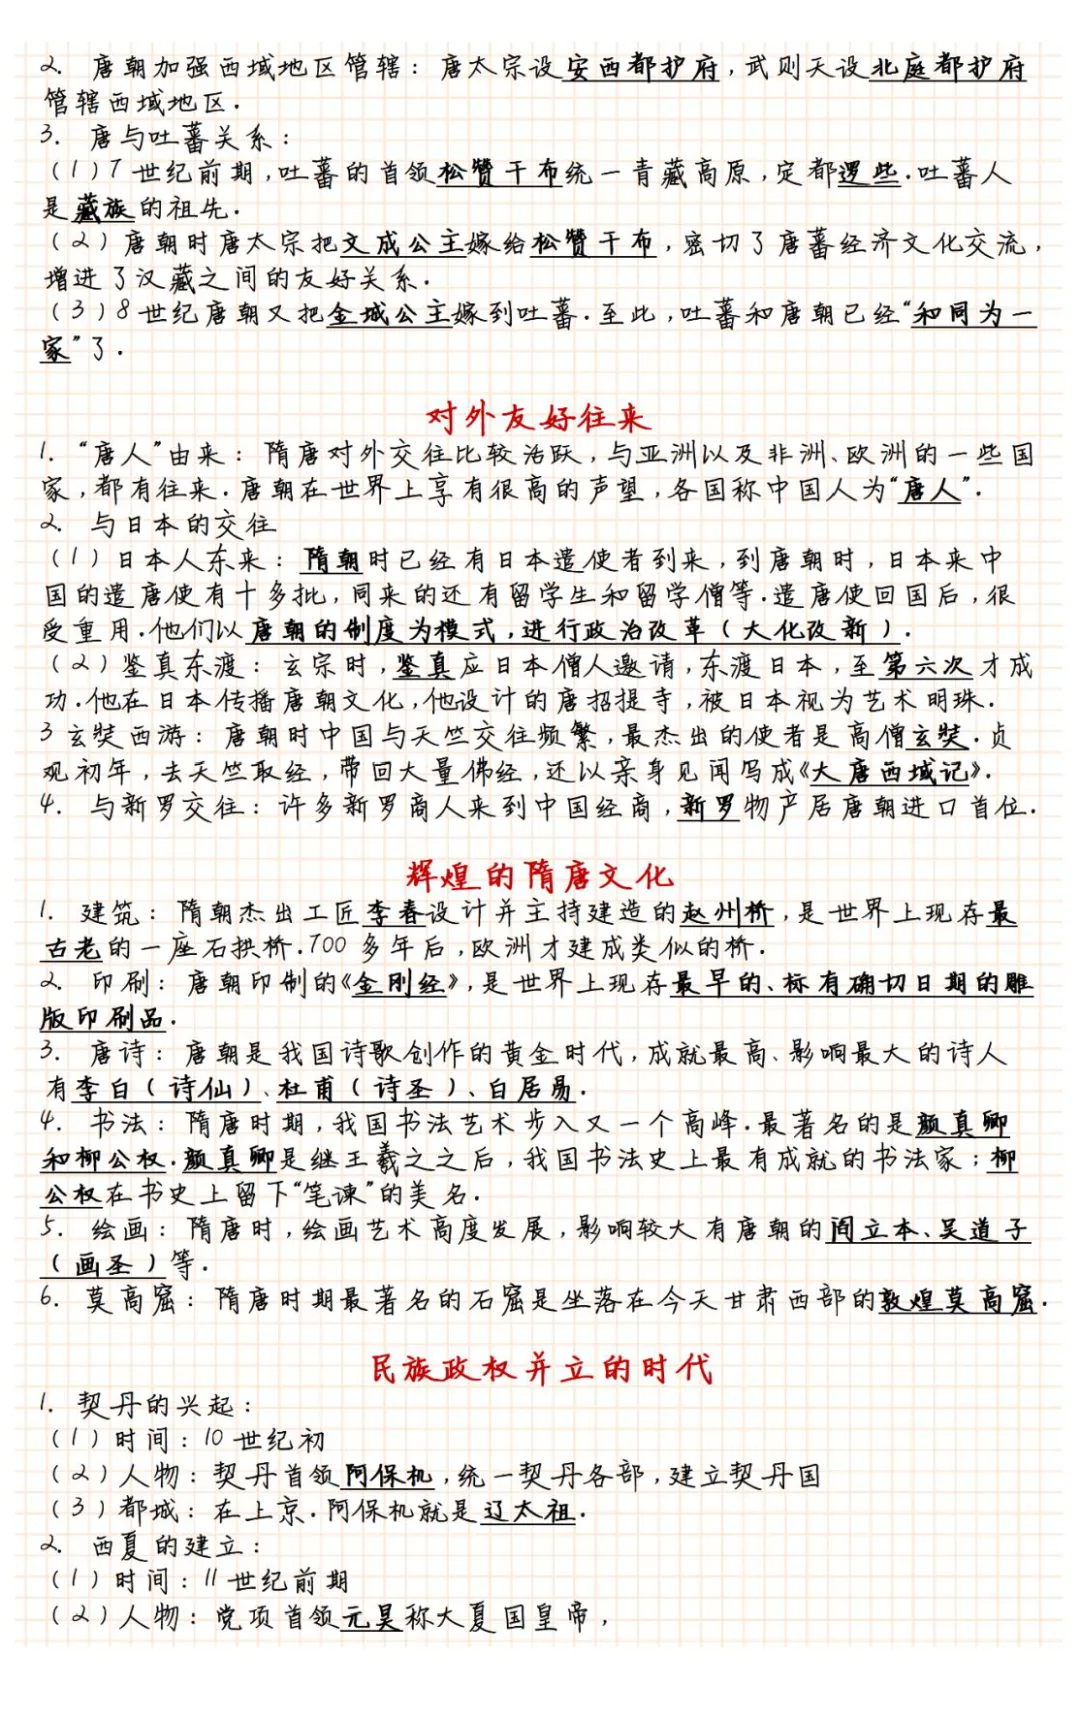 2. 唐朝加强西域地区管辖：唐太宗设安西都护府,武则天设北庭都护府
管辖西域地区.
3. 唐与吐蕃关系：
(1)7世纪前期,吐蕃的首领松赞干布统一青藏高原,定都逻些.吐蕃人
是藏族的祖先.
(2)唐朝时唐太宗把文成公主嫁给松赞干布,密切了唐蕃经济文化交流,
增进了汉藏之间的友好关系.
(3)8世纪唐朝又把金城公主嫁到吐蕃.至此,吐蕃和唐朝已经“和同为一
家”了.
对外友好往来
1. “唐人”由来：隋唐对外交往比较活跃,与亚洲以及非洲、欧洲的一些国
家,都有往来.唐朝在世界上享有很高的声望,各国称中国人为“唐人”.
2. 与日本的交往
(1)日本人东来：隋朝时已经有日本遣使者到来,到唐朝时,日本来中
国的遣唐使有十多批,同来的还有留学生和留学僧等.遣唐使回国后,很
受重用.他们以唐朝的制度为模式,进行政治改革(大化改新).
(2)鉴真东渡：玄宗时,鉴真应日本僧人邀请,东渡日本,至第六次才成
功.他在日本传播唐朝文化,他设计的唐招提寺,被日本视为艺术明珠.
3玄奘西游：唐朝时中国与天竺交往频繁,最杰出的使者是高僧玄奘.贞
观初年,去天竺取经,带回大量佛经,还以亲身见闻写成《大唐西域记》.
4. 与新罗交往：许多新罗商人来到中国经商,新罗物产居唐朝进口首位.
辉煌的隋唐文化
1. 建筑：隋朝杰出工匠李春设计并主持建造的赵州桥,是世界上现存最
古老的一座石拱桥.700多年后,欧洲才建成类似的桥.
2. 印刷：唐朝印制的《金刚经》,是世界上现存最早的、标有确切日期的雕
版印刷品.
3. 唐诗：唐朝是我国诗歌创作的黄金时代,成就最高、影响最大的诗人
有李白(诗仙)、杜甫(诗圣)、白居易.
4. 书法：隋唐时期,我国书法艺术步入又一个高峰.最著名的是颜真卿
和柳公权.颜真卿是继王羲之之后,我国书法史上最有成就的书法家；柳
公权在书史上留下“笔谏”的美名.
5. 绘画：隋唐时,绘画艺术高度发展,影响较大有唐朝的阎立本、吴道子
(画圣)等.
6. 莫高窟：隋唐时期最著名的石窟是坐落在今天甘肃西部的敦煌莫高窟.
民族政权并立的时代
1. 契丹的兴起：
(1)时间：10世纪初
(2)人物：契丹首领阿保机,统一契丹各部,建立契丹国
(3)都城：在上京.阿保机就是辽太祖.
2. 西夏的建立：
(1)时间：11世纪前期
(2)人物：党项首领元昊称大夏国皇帝,